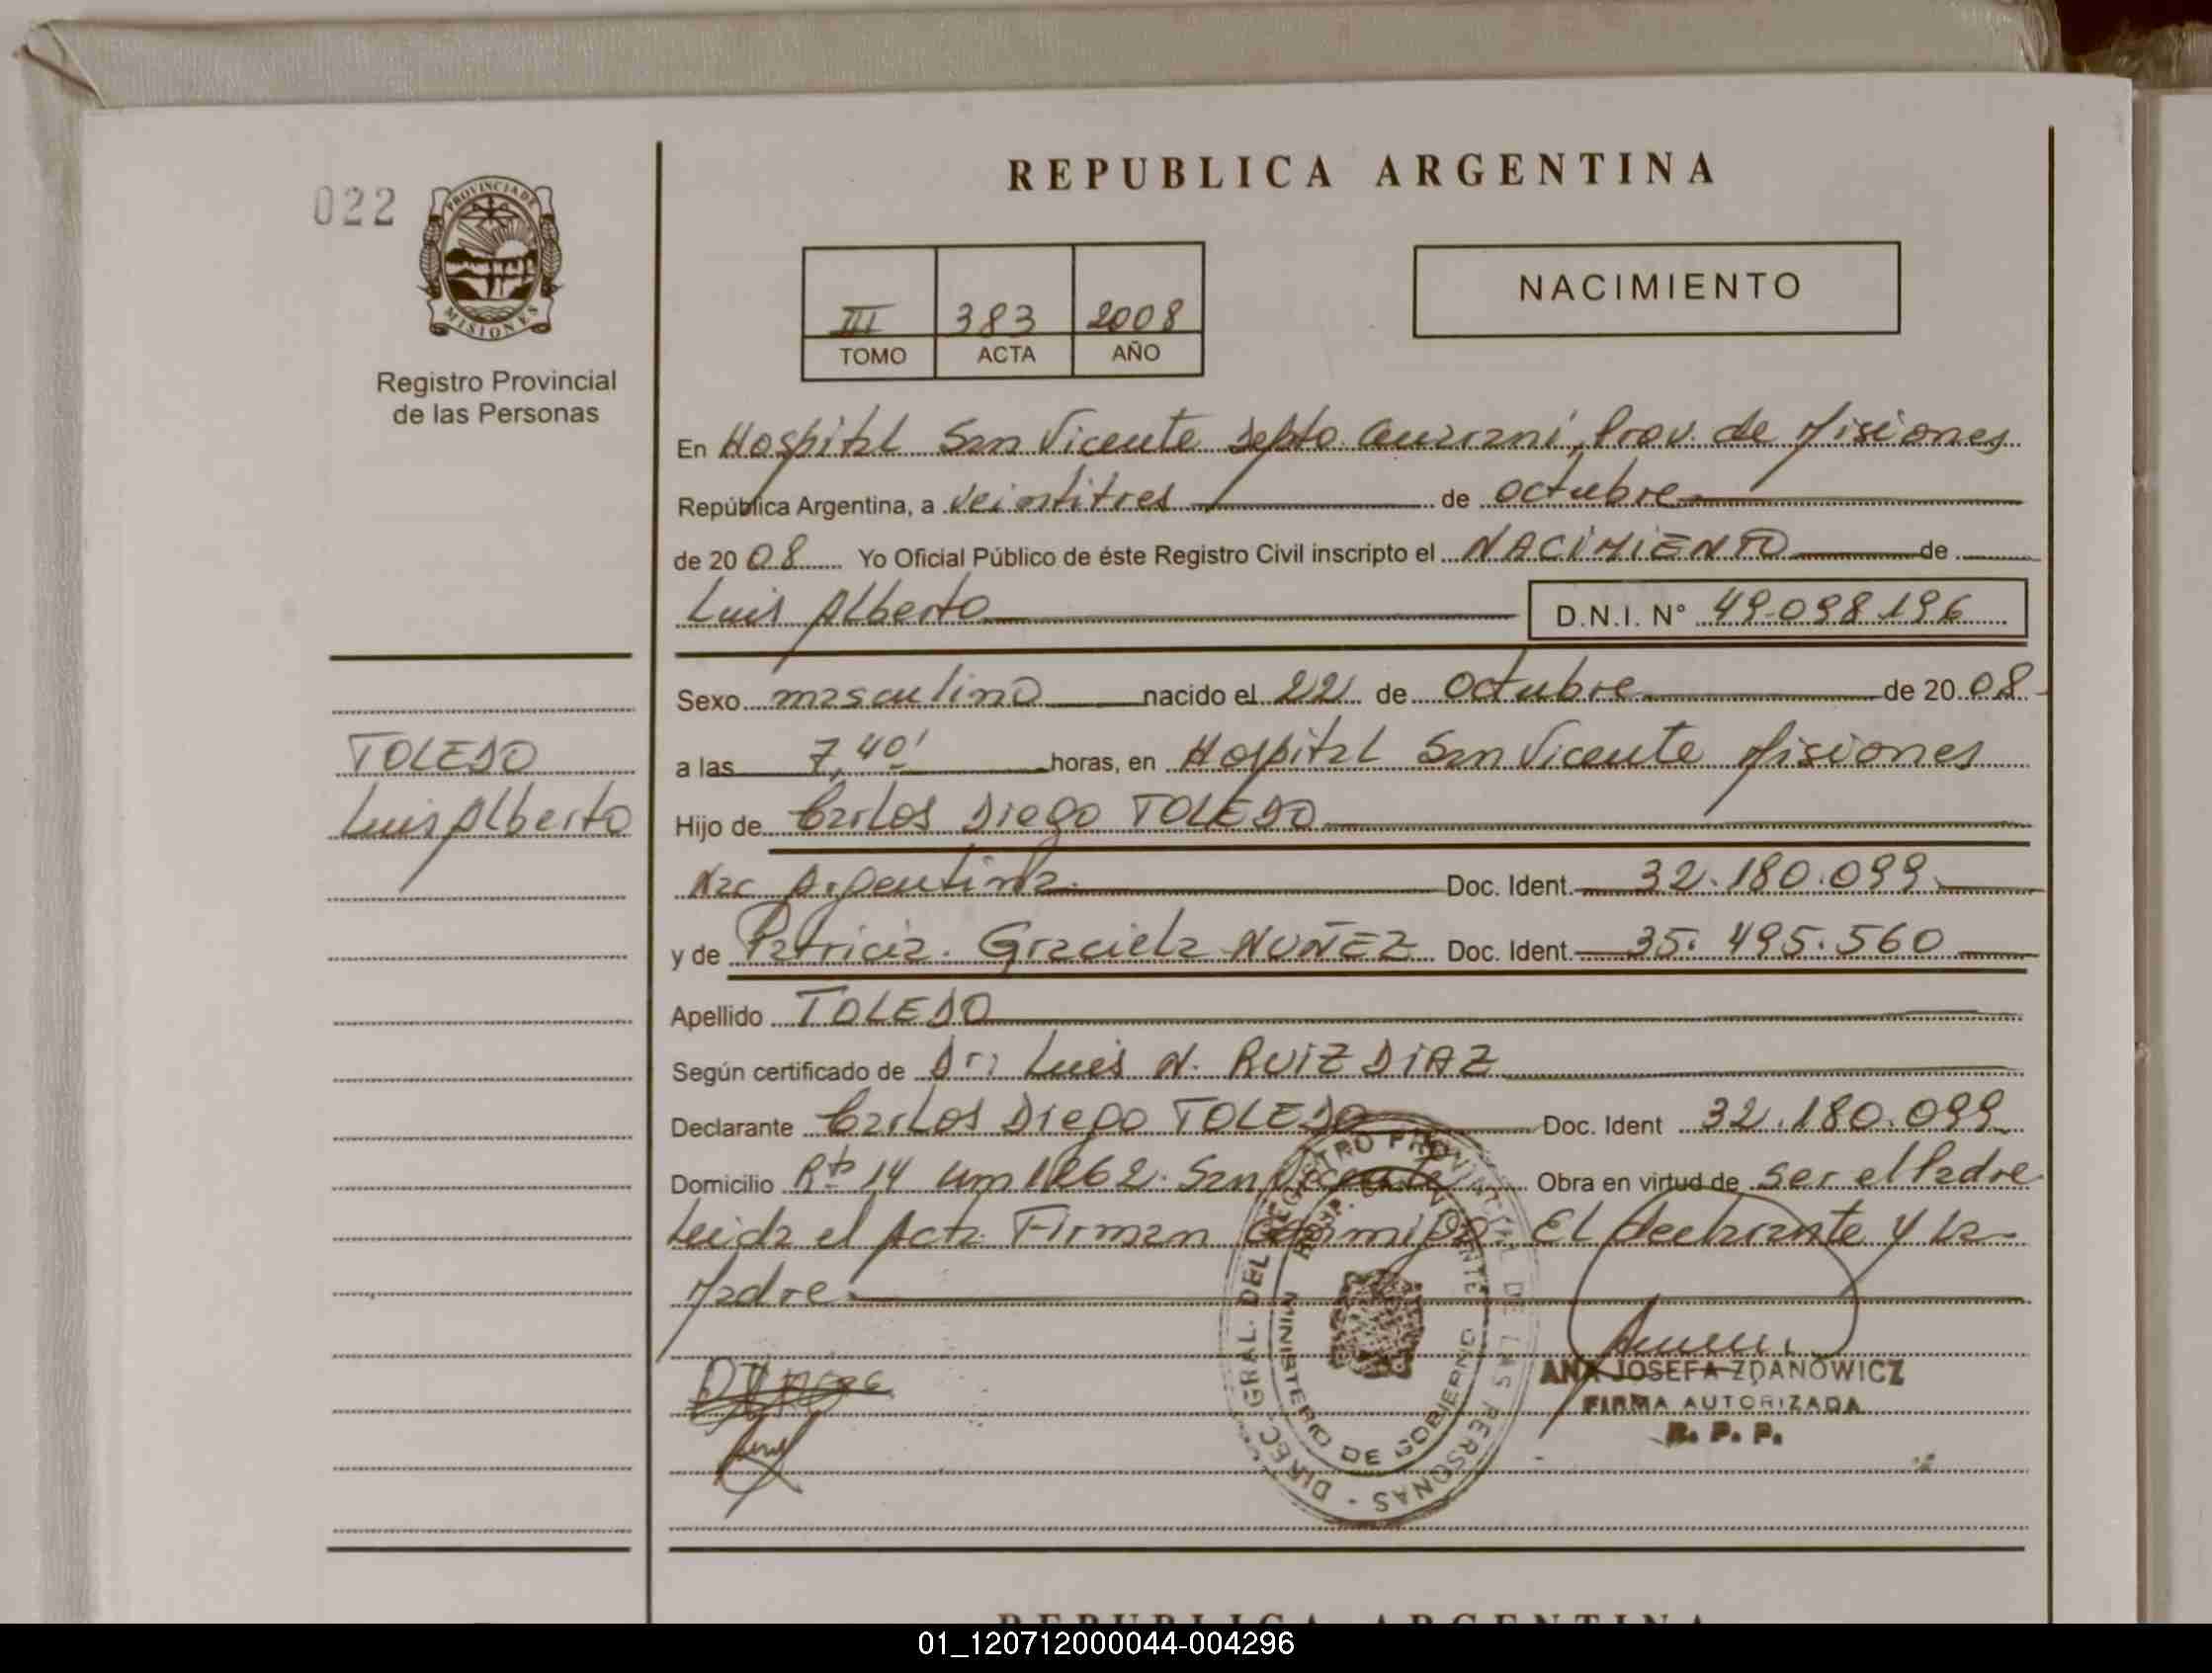 REPUBLICA ARGENTINA
022
PROVINCIA DE
MISIONES
Registro Provincial
de las Personas
III 383 2008
TOMO ACTA AÑO
NACIMIENTO
En Hospital San Vicente Depto Guarani, Prov. de Misiones
República Argentina, a veintitres de octubre
de 2008 Yo Oficial Público de éste Registro Civil inscripto el NACIMIENTO de
Luis Alberto D.N.I. N° 49.098.196
Sexo masculino nacido el 22 de Octubre de 2008
TOLEDO
Luis Alberto
a las 7,40' horas, en Hospital San Vicente Misiones
Hijo de Carlos Diego TOLEDO
Nac Argentina Doc. Ident. 32.180.099
y de Patricia Graciela NUÑEZ Doc. Ident. 35.495.560
Apellido TOLEDO
Según certificado de Dr: Luis N. RUIZ DIAZ
Declarante Carlos Diego TOLEDO Doc. Ident 32.180.099
Domicilio Rta 14 km 1262 San Vicente Obra en virtud de ser el Padre
Leida el Acta Firman Conmigo El declarante y la
Madre
DIREC. GRAL. DEL REGISTRO PROVINCIAL DE LAS PERSONAS
MINISTERIO DE GOBIERNO
ANA JOSEFA ZDANOWICZ
FIRMA AUTORIZADA
R. P. P.
REPUBLICA ARGENTINA
01_120712000044-004296